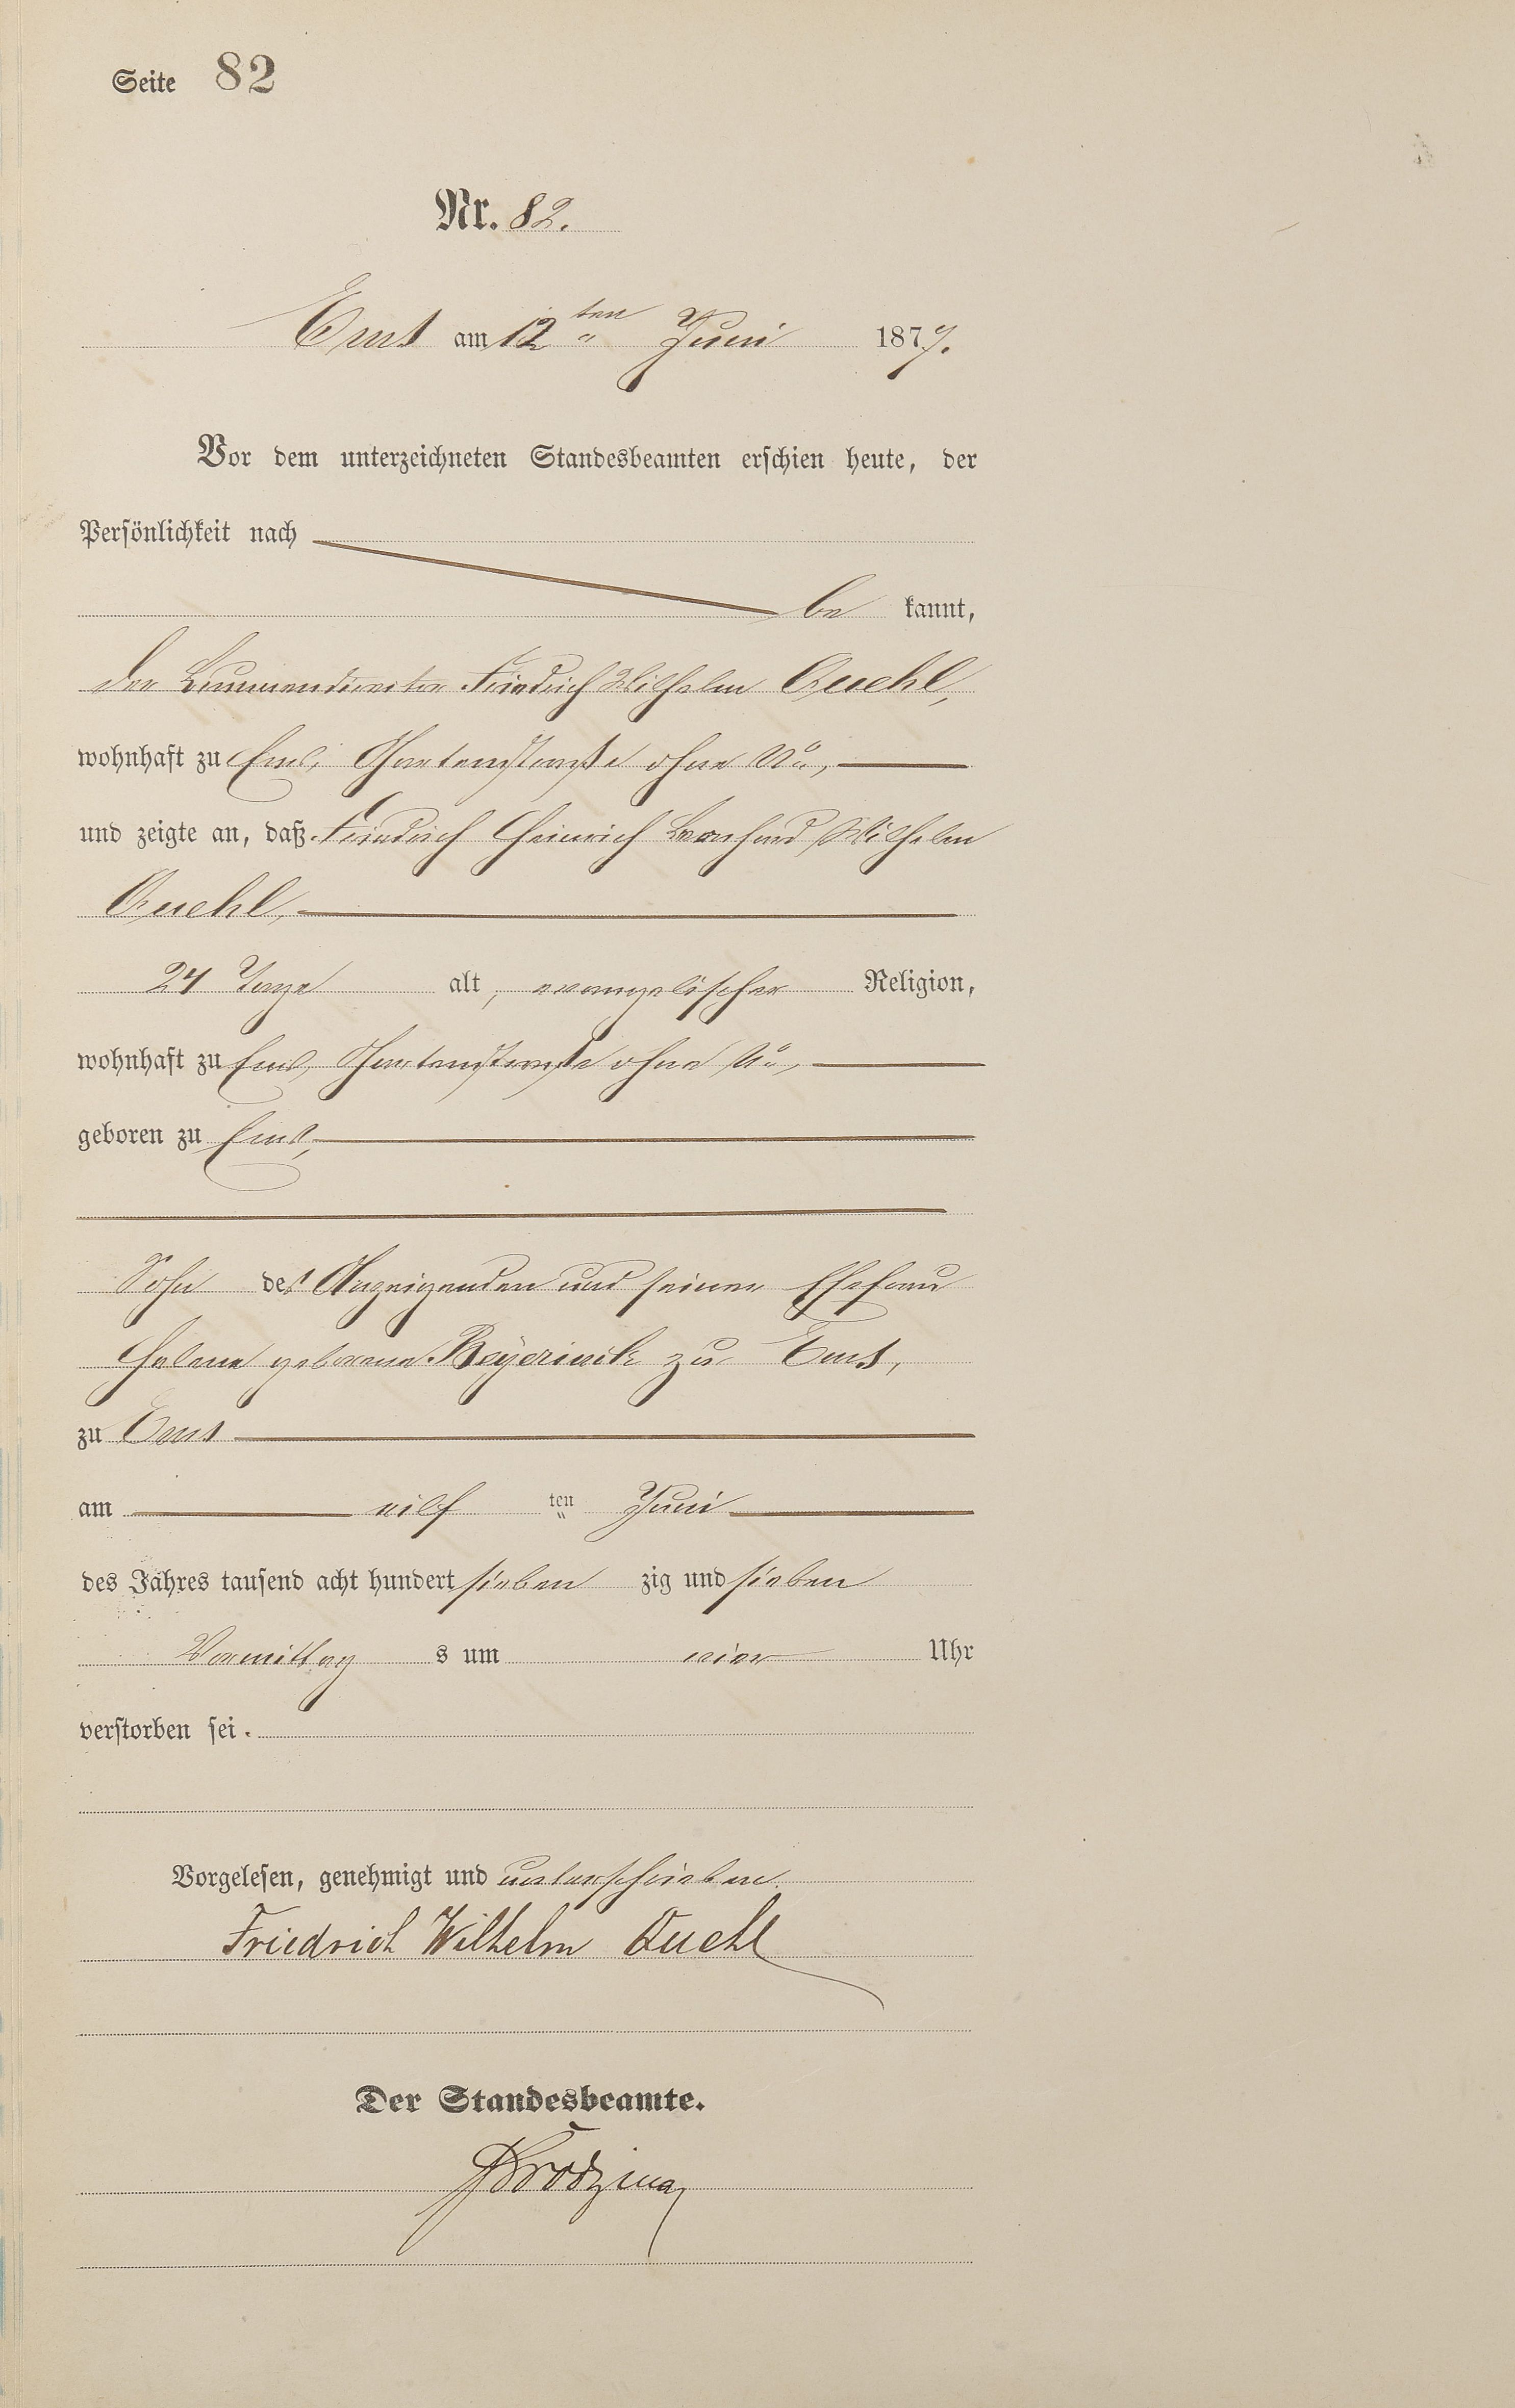 Seite 82
Nr. 82.
Ems am 12ten Juni 1877.
Vor dem unterzeichneten Standesbeamten erschien heute, der
Persönlichkeit nach
be kannt,
der Brunnendirector Friedrich Wilhelm Quehl,
wohnhaft zu Ems, Gartenstraße ohne No,
und zeigte an, daß Friedrich Heinrich Bernhard Wilhelm
Quehl,
24 Tage alt, evangelischer Religion,
wohnhaft zu Ems, Gartenstraße ohne No,
geboren zu Ems,
Sohn des Anzeigenden und seiner Ehefrau
Helene geborene Beyerinck zu Ems,
zu Ems
am eilf ten Juni
des Jahres tausend acht hundert sieben zig und sieben
Vormittag s um vier Uhr
verstorben sei.
Vorgelesen, genehmigt und unterschrieben.
Friedrich Wilhelm Quehl
Der Standesbeamte.